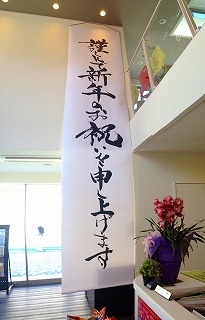 謹んで新年のお祝いを申し上げます